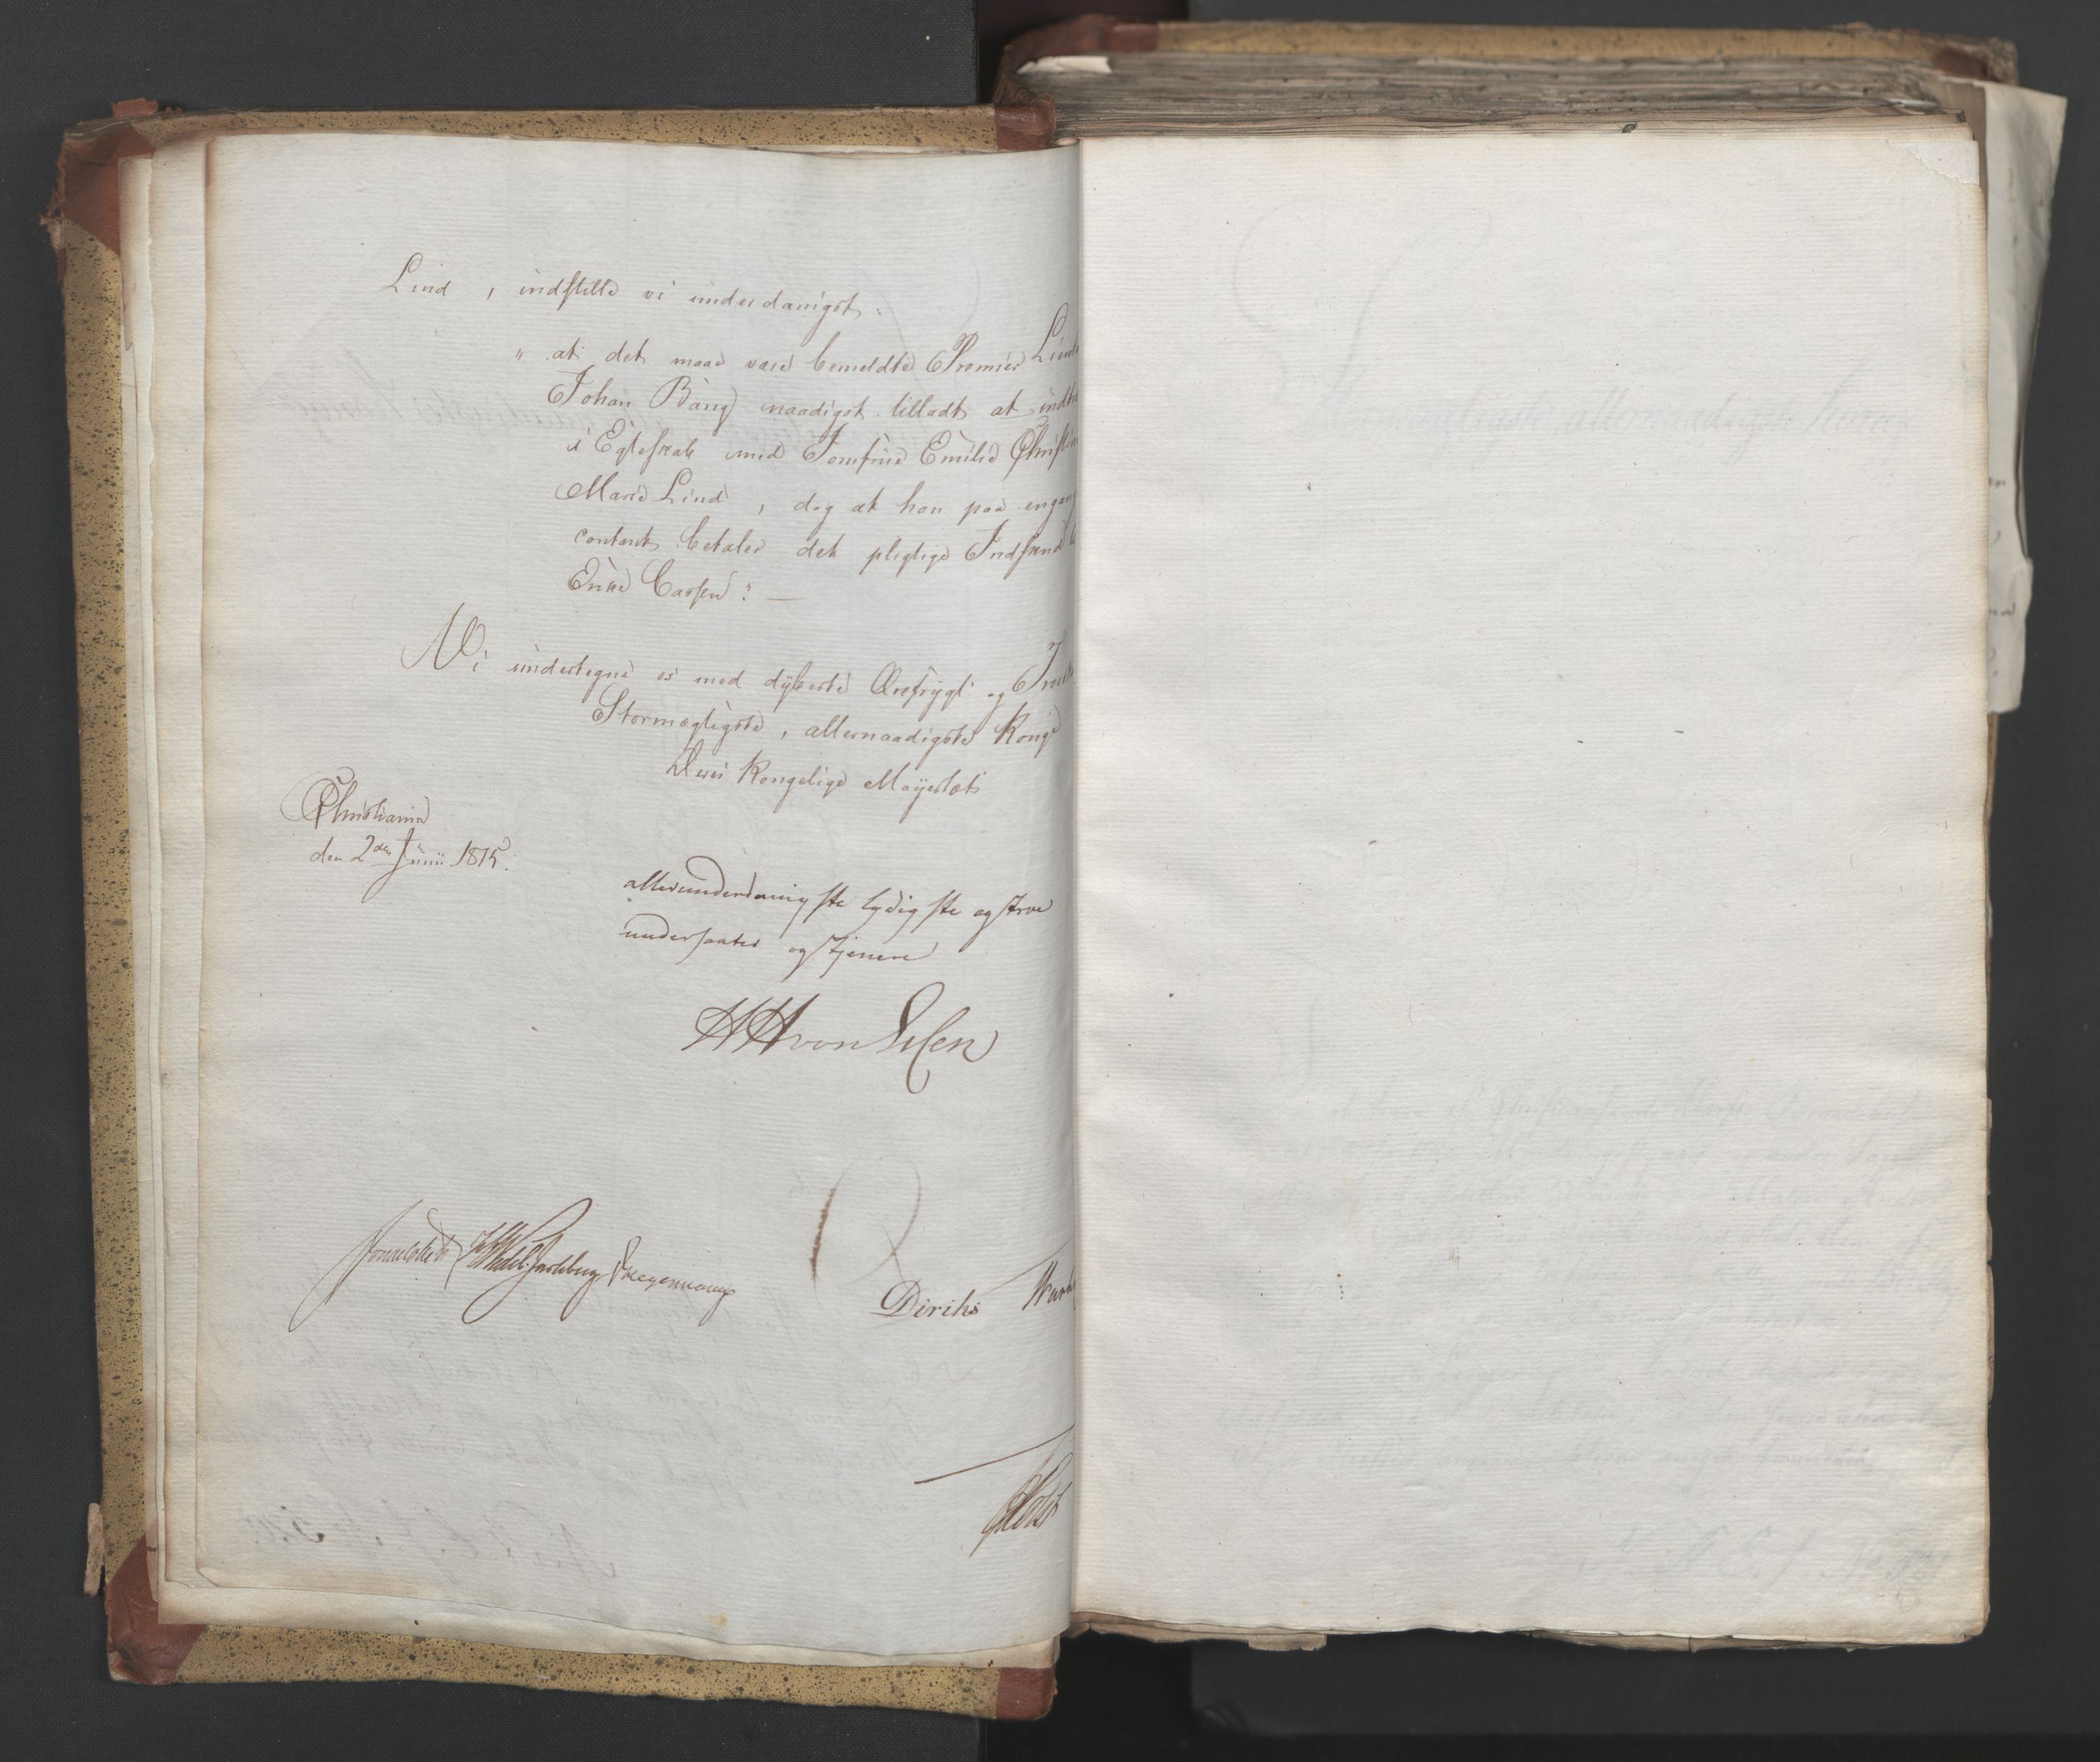 Lind, indstille vi underdanigst:
" at det maae være bemeldte Premier Lieut
Johan Bang naadigst tilladt at indtræ
i Egteskab med Jomfrue Emilie Christi
Marie Lind, dog at han paa engang
contant betaler det pligtige Indskud
Enke Cassen" : —
Vi undertegne os med dybeste Ærefrygt og
Stormægtigste, allernaadigste Konge
Deres Kongelige Mayestæts
Christiania
den 2den Junii 1815.
allerunderdanigste lydigste og troe
undersaatter og tjenere
HH von Essen
Sommerhielm FWedel-Jarlsberg Kregnumoug
Diriks
Holst